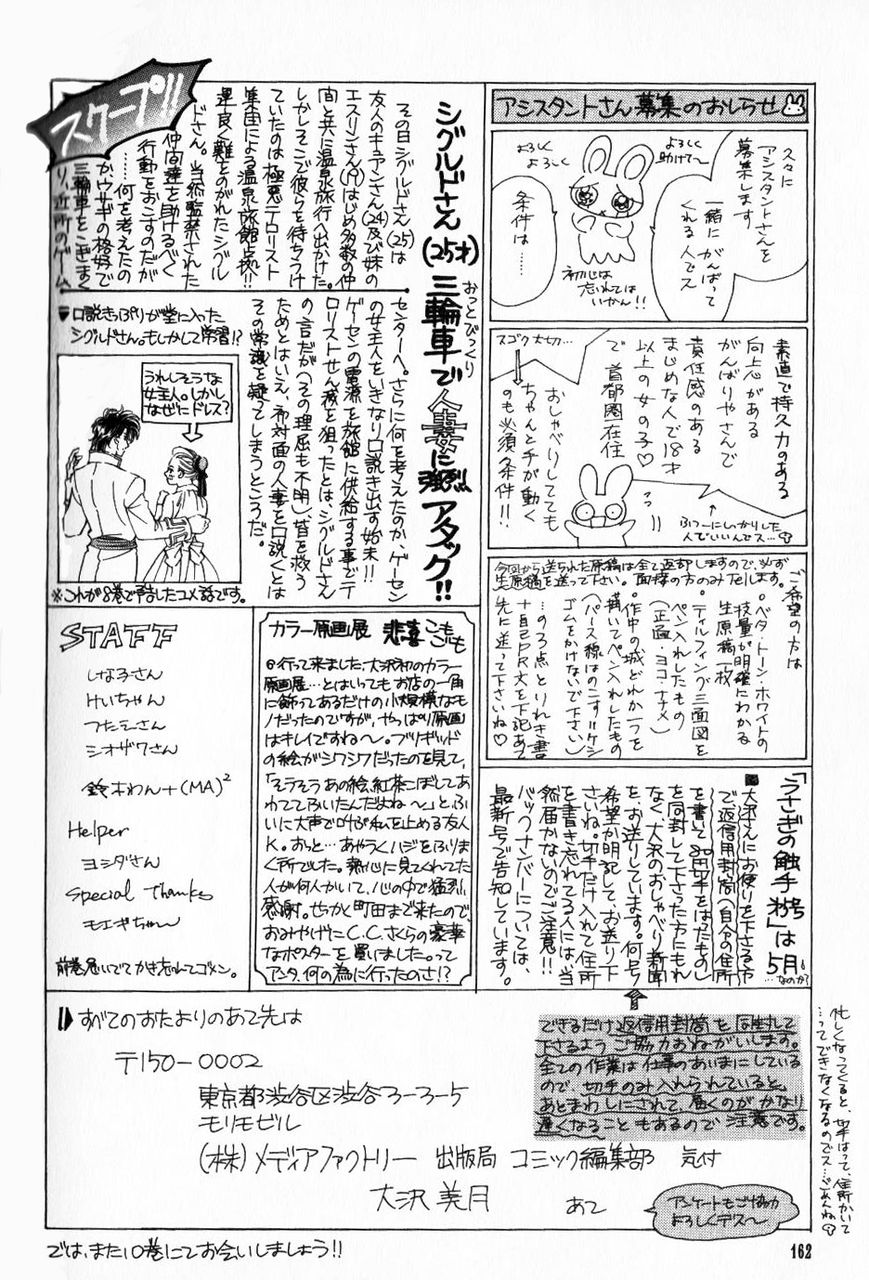 アシスタントさん募集のおしらせ
久々に
アシスタントさんを
募集します
一緒に がんばって
くれる人でス
条件は……
よろしく
よろしく
よろしく
助けて〜
初心は
忘れては
いかん!!
素直で持久力のある
向上心がある
がんばりやさんで
責任感のある
まじめな人で18才
以上の女の子♡
で 首都圏在住
スゴク大切…
おしゃべりしてても
ちゃんと手が動く
のも必須条件!!
ふつーにしっかりした
人でいいんでス…
今回から送られた原稿は全て返却しますので、必ず
生原稿を送って下さい。面接の方のみTelします。
ご希望の方は
・ベタ・トーン・ホワイトの
技量が明確にわかる
生原稿一枚
・ティルフィング三面図を
ペン入れしたもの
(正面・ヨコ・ナナメ)
・作中の城どれか一つを
描いてペン入れしたもの
(パース線はのこす!!ケシ
ゴムをかけないで下さい)
…の3点とりれき書
+自己PR文を下記あて
先に送って下さいね♡
スクープ!!
シグルドさん(25才)三輪車で人妻に強烈アタック!!
おっとびっくり
その日シグルドさん(25)は
友人のキュアンさん(24)及び妹の
エスリンさん(19)はじめ多数の仲
間と共に温泉旅行へ出かけた。
しかしそこで彼らを待ちうけ
ていたのは極悪テロリスト
集団による温泉旅館占拠!!
運良く難をのがれたシグル
ドさん。当然監禁された
仲間達を助けるべく
行動をおこすのだが
……何を考えたの
かウサギの格好で
三輪車をこぎまく
り、近所のゲーム
センターへ。さらに何を考えたのか、ゲーセン
の女主人をいきなり口説き出す始末!!
ゲーセンの電源を旅館に供給する事でテ
ロリストせん滅を狙ったとは、シグルドさん
の言だが(その理屈も不明)、皆を救う
ためとはいえ、初対面の人妻を口説くとは
その常識を疑ってしまうところだ。
口説きっぷりが堂に入った
シグルドさん。もしかして学習!?
うれしそうな
女主人。しかし
なぜにドレス?
※これが8巻で予告したユメ話です。
「うさぎの触手 9号」は5月
…なのか?
■大沢さんにお便りを下さる方
で返信用封筒(自分の住所
を書いて80円切手をはったもの)
を同封して下さった方にもれ
なく大沢のおしゃべり新聞
を、お送りしています。何号
希望か明記して、お送り下
さいね。切手だけ入れて住所
を書き忘れてる人には、当
然届かないのでご注意!!
バックナンバーについては、
最新号で告知しています。
カラー原画展 悲喜こもごも
◎行って来ました:大沢初のカラー
原画展…とはいってもお店の一角
に飾ってあるだけの小規模なモ
ノだったのですが、やっぱり原画
はキレイですね〜。ブリギッド
の絵がシワシワだったのを見て、
「そうそうあの絵、紅茶こぼしてあ
わててふいたんだよね〜」と、ふ
いに大声で叫ぶ私を止める友人
K。おっと…あやうくハジをふりま
く所でした。熱心に見てくれてた
人が何人かいて、心の中で猛烈
感謝。せっかく町田まで来たので、
おみやげにC.C.さくらの豪華
なポスターを買いました。って
アンタ、何の為に行ったのさ!?
STAFF
しなこさん
けいちゃん
つたえさん
シオザワさん
鈴木わん+(MA)²
Helper
ヨシダさん
Special Thanks
モエギちゃ〜ん
前巻急いでてかき忘れてゴメン。
すべてのおたよりのあて先は
〒150-0002
東京都渋谷区渋谷3-3-5
モリモビル
(株)メディアファクトリー 出版局 コミック編集部 気付
大沢美月 あて
できるだけ返信用封筒を同封して
下さるよう ご協力おねがいします。
全ての作業は仕事のあいまにしている
ので、切手のみ入れられていると。
あとまわしにされて、届くのがかなり
遅くなることもあるので注意です。
忙しくなってくると、切手はって、住所かいて
…ってできなくなるのでス…ごめんね
アンケートもご協力
よろしくデス〜
では、また10巻にてお会いしましょう!!
162